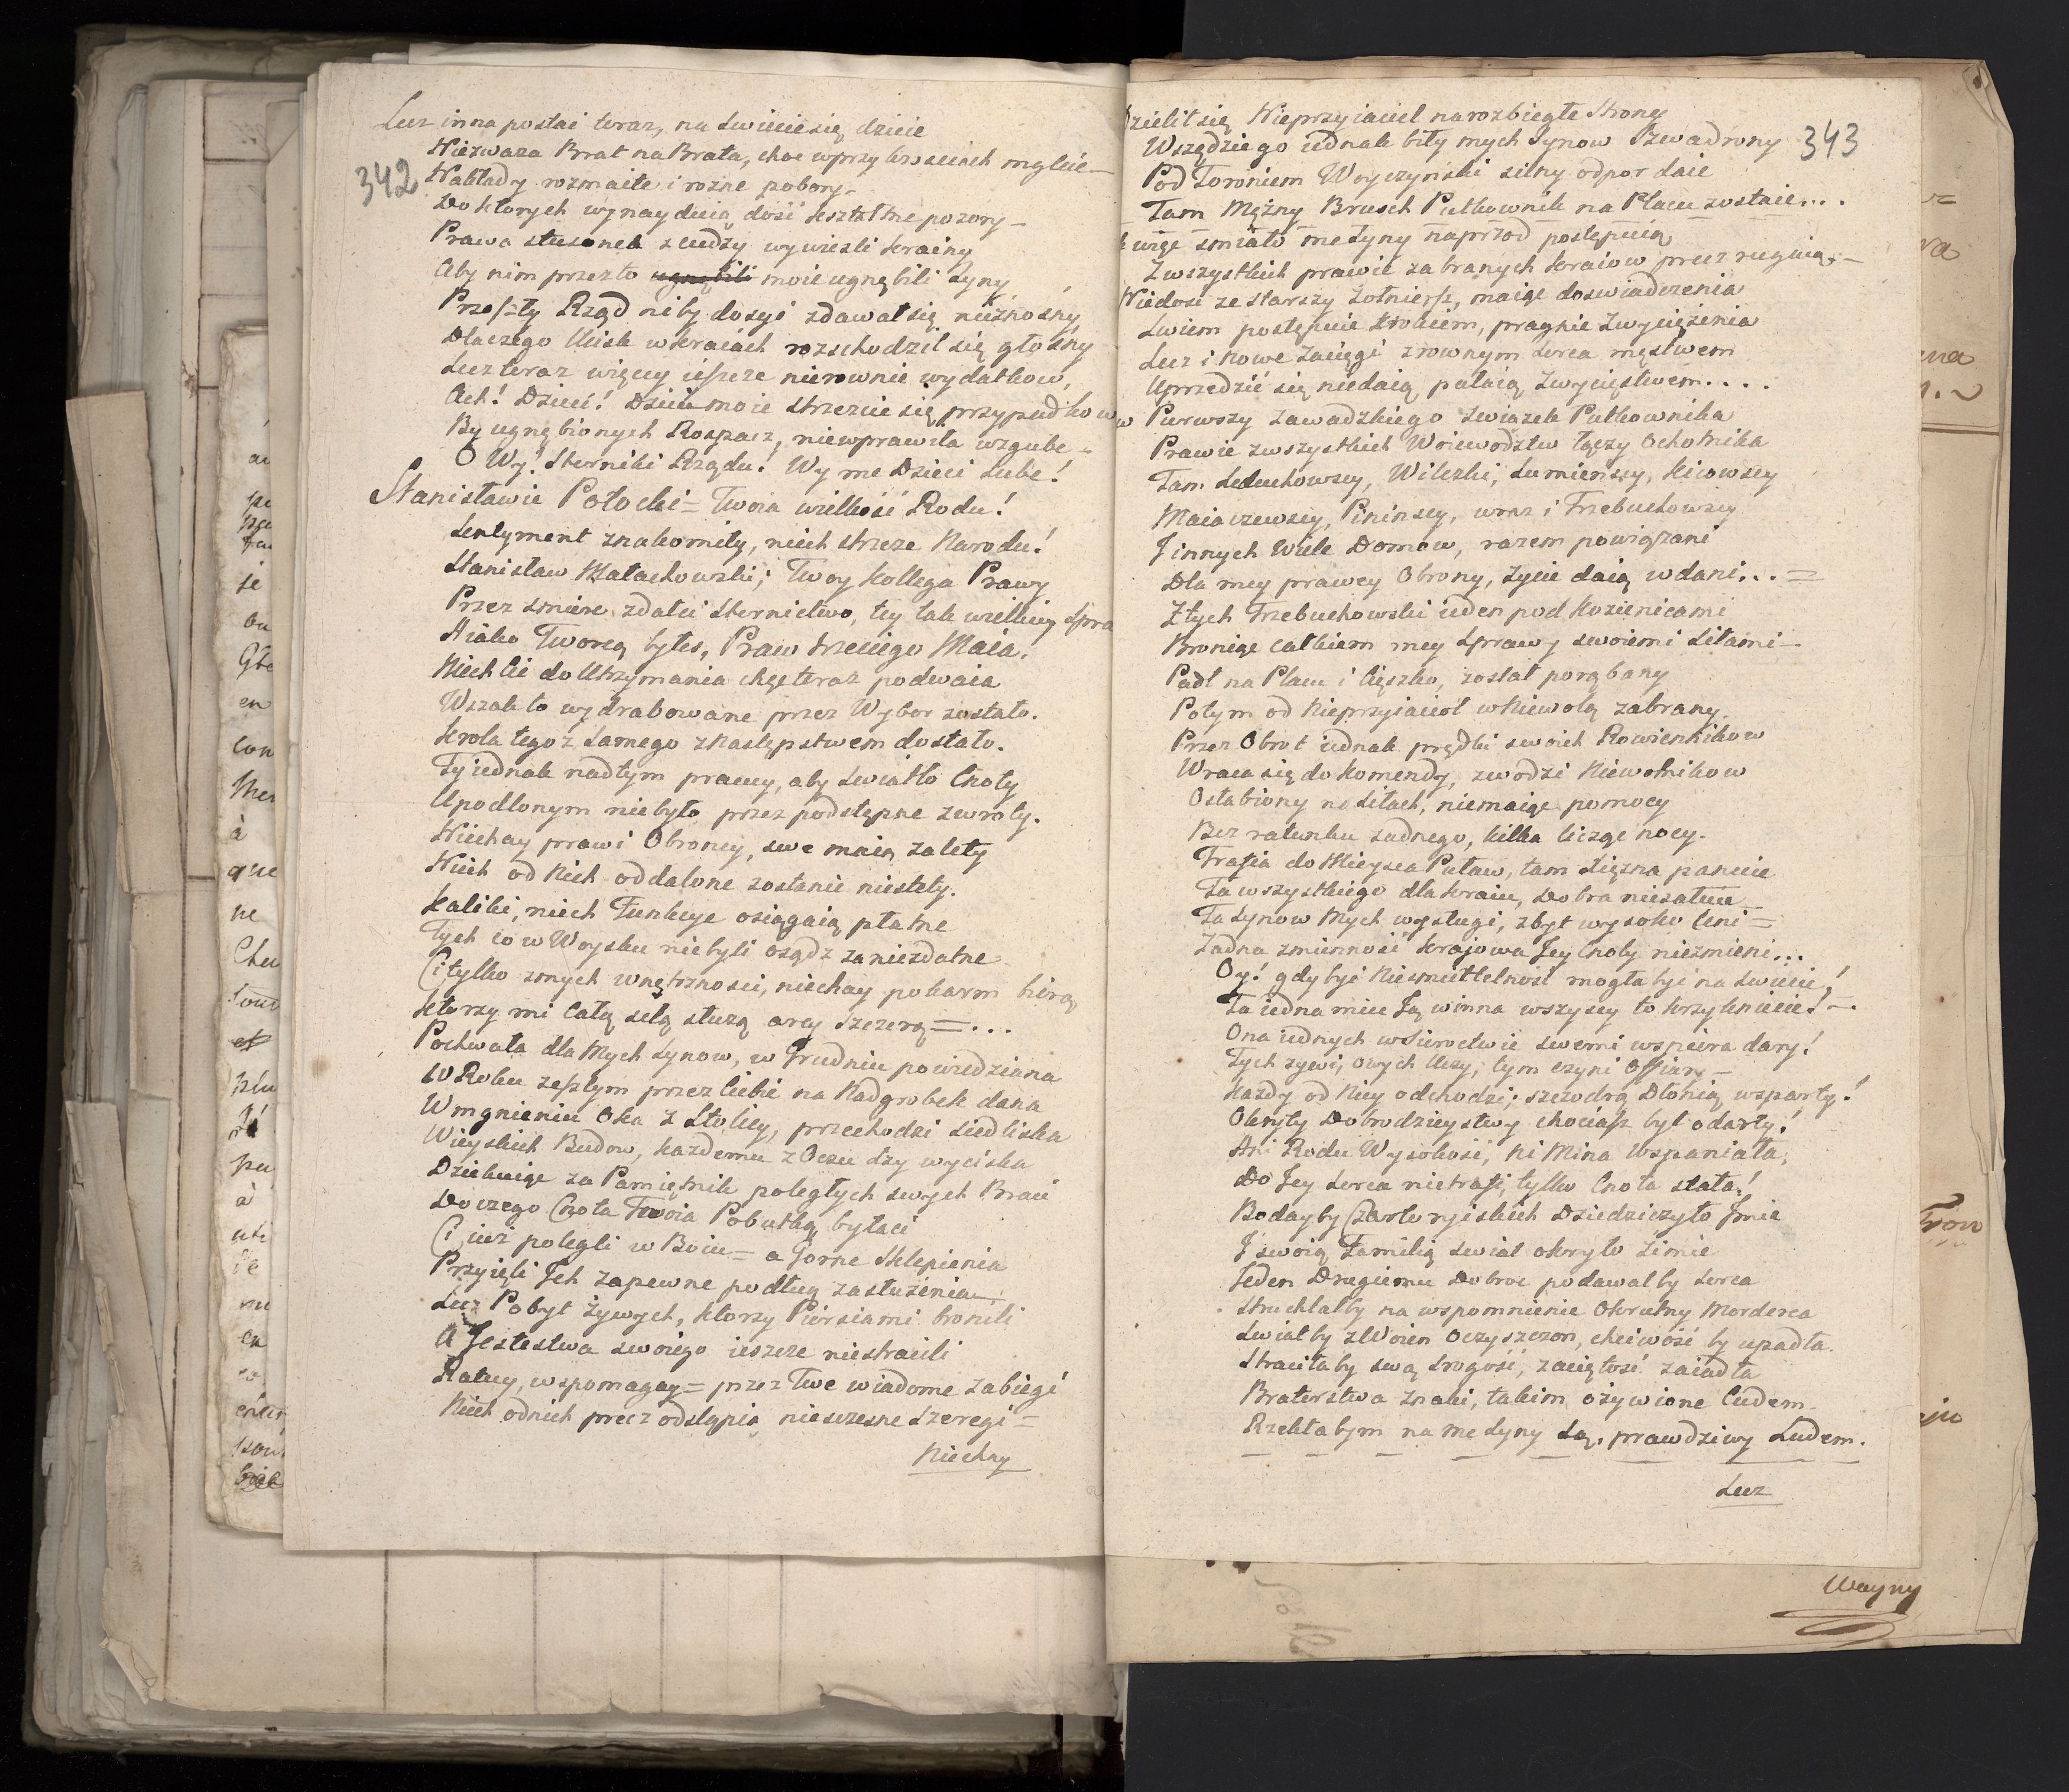 342
Lecz inna postać teraz, na Swiecie się dzieie
Niezwaza Brat na Brata, choc w przykrosciach mgleie —
Nakłady rozmaite i rozne pobory —
Do ktorych wynayduią dość ksztaltne pozory —
Prawa stusonek z cudzy wywiezli krainy
Aby nim przezto ugnębili moie ugnębili Syny
Przeszły Rząd niby dosyć zdawał się nieznosny
Dlaczego Ucisk w kraiach rozchodził się głosny
Lecz teraz więcey ieszcze nierownie wydatkow,
Ach! Dzieci! Dzieci moie strzezcie się przypadkow
By ugnębionych Rospacz, niewprawiła w zgubę —
O Wy! Sterniki Rządu! Wy me Dzieci Lube!
Stanisławie Potocki = Twoia wielkość Rodu!
Sentyment znakomity, niech strzeze Narodu!
Stanisław Małachowski; Twoy Kollega Prawy
Przez smierc zdał ci Sternictwo, tey tak wielkiey Spra
A iako Tworcą byłes, Praw trzeciego Maia.
Niech Cie do Utrzymania chęc teraz podwaia
Wszak to wydrabowane przez Wybor zostało.
Krola tegoz samego z Nastepstwem dostało.
Ty iednak nad tym pracuy, aby Swiatło Cnoty
Upodlonym niebyło przez podstępne zwroty.
Niechay prawi Obroncy, swe maią zalety
Niech od Nich oddalone zostanie niestety.
Kaliki, niech Funkcye osiągaią płatne
Tych co w Woysku niebyli osądz za niezdatne
Ci tylko z mych wnętrznosci, niechay pokarm biorą
Ktorzy mi Całą siłą słuzą arcy Szczerą = ...
Pochwała dla Mych Synow, w Grudniu powiedziana
W Roku zeszłym przez Ciebie na Nadgrobek dana
W mgnieniu Oka z Stolicy, przechodzi Siedliska
Wieyskich Budow, kazdemu z Oczu łzy wyciska
Dziękuige za Pamiętnik poległych swych Braci
Do czego Cnota Twoia Pobutką była ci
Ci iuż polegli w Boiu = a Gorne Sklepienia
Przyięli Jch zapewne podług zasłużenia
Lecz Pobyt Żywych, ktorzy Piersiami bronili
A Jestestwa swoiego ieszcze niestracili
Ratuy, wspomagay = przez Twe wiadome zabiegi
Niech od nich precz odstąpią nieszczesne Szeregi =
Niechay
343
Dzielił się Nieprzyiaciel na rozbiegłe Strony
Wszędzie go iednak biły mych Synow Szwadrony
Pod Toroniem Woyczynski silny odpor daie
Tam Mężny Brusch Pułkownik na Placu zostaie...
więc smiało me Syny naprzod postępuią
Z wszystkich prawie zabranych kraiow precz ruguią —
Niedosc ze Starszy Żołniersz, maiąc doswiadczenia
Lwiem postępuie krokiem, pragnie Zwyciężenia
Lecz i Nowe Zaciągi z rownym Serca męstwem
Uprzedzić się niedaią pałaią Zwycięstwem....
Pierwszy Zawadzkiego Zwiazek Pułkownika
Prawie z wszystkich Woiewodztw łączy Ochotnika
Tam Leduchowscy, Wilczki, Lumienscy, Kicowscy
Maiaczewscy, Pininscy, wraz i Trzebuchowscy
J innych Wiele Domow, razem powiązani
Dla mey prawey Obrony, życie daią w dani... =
Z tych Trzebuchowski ieden pod Kozienicami
Broniąc całkiem mey Sprawy swoiemi Siłami —
Padł na Placu i Cięszko, został porąbany
Potym od Nieprzyiacioł w Niewolą zabrany.
Przez Obrot iednak prędki swoich Rowiennikow
Wraca się do Komendy, zwodzi Niewolnikow
Osłabiony na Siłach, niemaiąc pomocy
Bez ratunku zadnego, kilka licząc nocy.
Trafia do Mieysca Puław, tam Xiężna panuie
Ta wszystkiego dla Kraiu, Dobra niezałuie
Ta Synow Mych wysługi, zbyt wysoko Ceni =
Zadna zmienność krajowa Jey Cnoty niezmieni...
Oy! gdyby niesmiertelność mogła być na Swiecie!
Ta iedna miec Ją winna wszyscy to krzykniecie! —.
Ona iednych w Sieroctwie swemi wspiera dary!
Tych zywi, owych Uczy; tym czyni Offiary —
Kazdy od Niey odchodzi; szczodrą Dłonią wsparty!
Okryty Dobrodzieystwy chociasz był odarty!
Ani Rodu Wysokość, ni Mina Wspaniała,
Do Jey Serca nietrafi, tylko Cnota stała!
Bodayby Czartoryiskich Dziedziczyło Jmie
J swoią Familią Swiat okryło Zimie
Jeden Drugiemu Dobroc podawałby Serca
Struchlałby na wspomnienie Okrutny Morderca
Swiatby z Woien Oczyszczon, chciwość by upadła.
Straciłaby swą srogość, zaciętość zaiadła
Braterstwa Znaki, takim ożywione Cudem.
Rzekłabym na me Syny Są, prawdziwy Ludem.
Lecz
Wayny